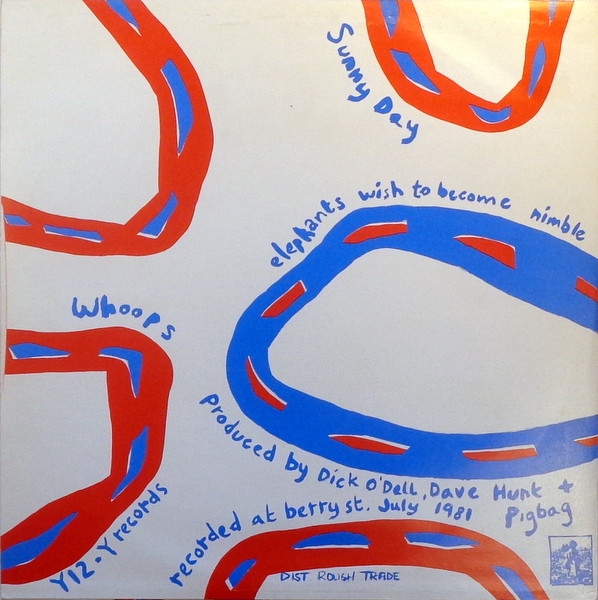 Sunny Day
elephants wish to become nimble
Whoops
produced by Dick O'Dell, Dave Hunt +
Pigbag
recorded at berry st. July 1981
Y12 - Y records
DIST. ROUGH TRADE